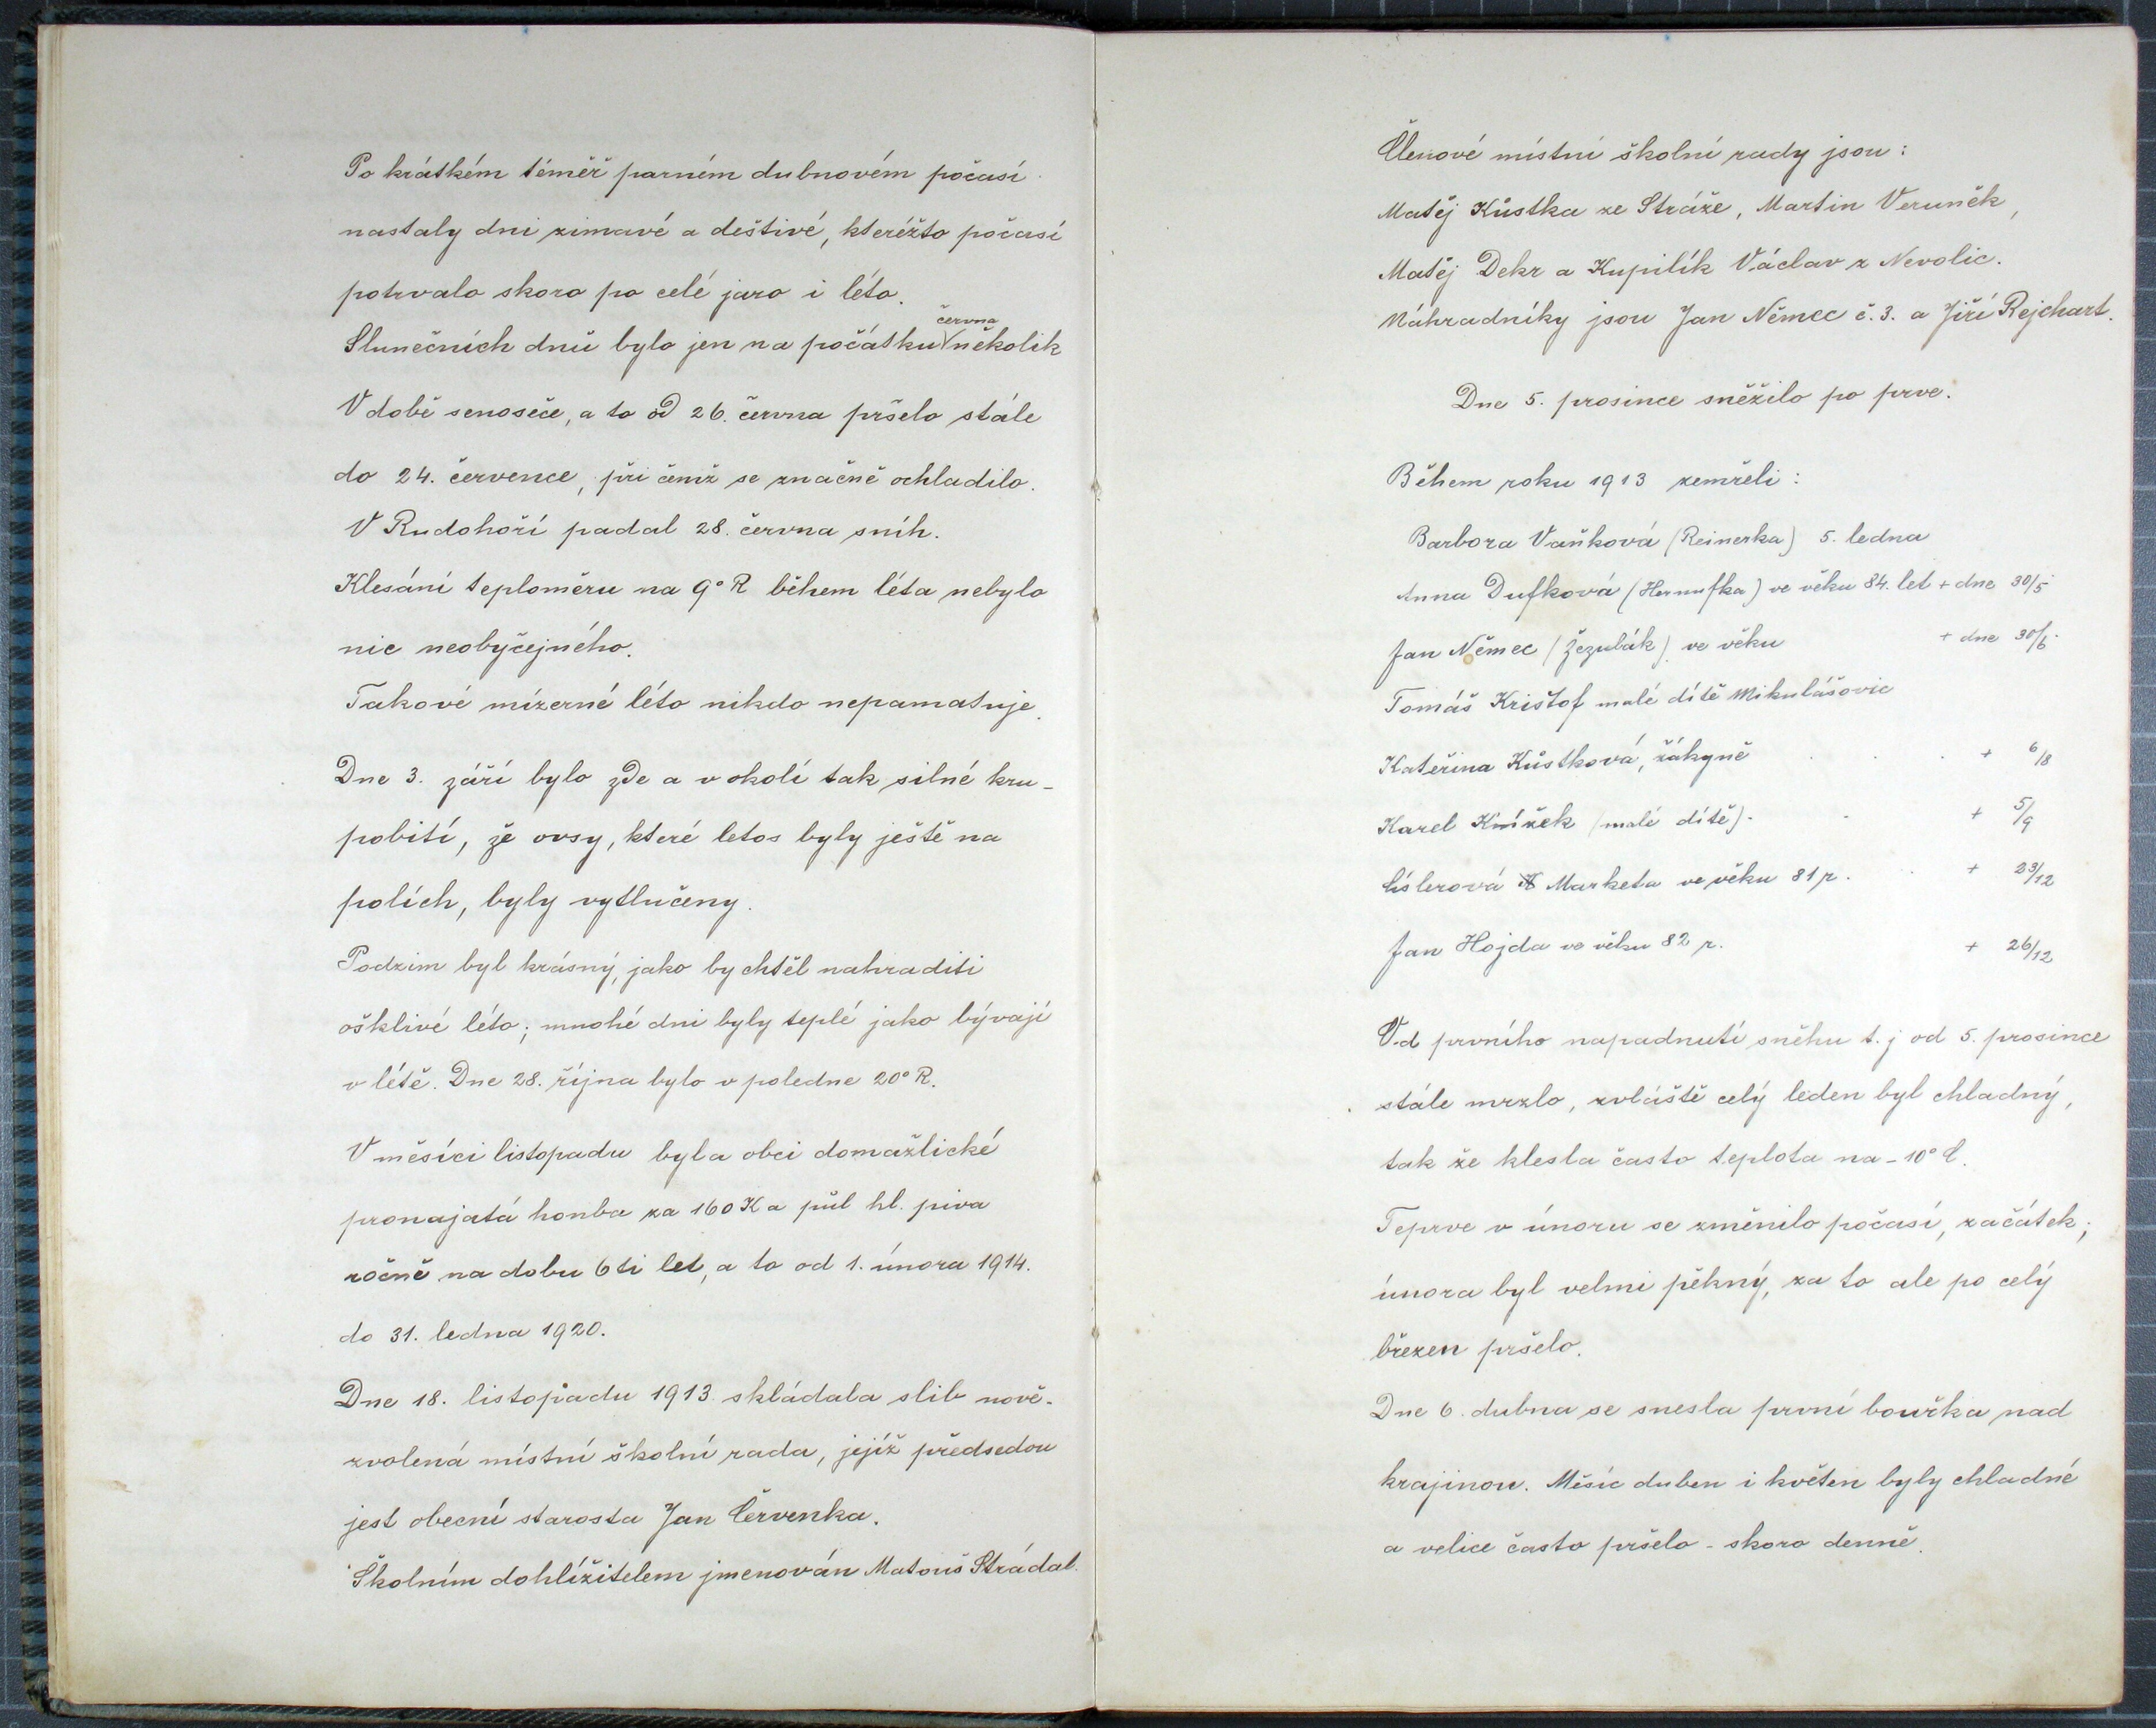 Po krátkém téměř parném dubnovém počasí
nastaly dni zimavé a deštivé, kteréžto počasí
potrvalo skoro po celé jaro i léto.
června
Slunečních dnů bylo jen na počátku několik
V době senoseče, a to od 26. června pršelo stále
do 24. července, při čemž se značně ochladilo.
V Rudohoří padal 28. června sníh.
Klesání teploměru na 9° R během léta nebylo
nic neobyčejného.
Takové mizerné léto nikdo nepamatuje.
Dne 3. září bylo zde a v okolí tak silné kru-
pobití, že ovsy, které letos byly ještě na
polích, byly vytlučeny.
Podzim byl krásný, jako by chtěl nahraditi
ošklivé léto; mnohé dni byly teplé jako bývají
v létě. Dne 28. října bylo v poledne 20° R.
V měsíci listopadu byla obci domažlické
pronajatá honba za 160 K a půl hl. piva
ročně na dobu 6ti let, a to od 1. února 1914.
do 31. ledna 1920.
Dne 18. listopadu 1913 skládala slib nově-
zvolená místní školní rada, jejíž předsedou
jest obecní starosta Jan Červenka.
Školním dohlížitelem jmenován Matouš Strádal.
Členové místní školní rady jsou:
Matěj Kůstka ze Stráže, Martin Veruněk,
Matěj Dekr a Kupilík Václav z Nevolic.
Náhradníky jsou Jan Němec č. 3. a Jiří Rejchart.
Dne 5. prosince sněžilo po prve.
Během roku 1913 zemřeli:
Barbora Vaňková (Reinerka) 5. ledna
Anna Dufková (Hernufka) ve věku 84. let + dne 30/5
Jan Němec (Žezulák) ve věku + dne 30/6.
Tomáš Krištof malé dítě Mikulášovic
Kateřina Kůstková, žákyně . . . + 6/8
Karel Knížek (malé dítě) . . + 5/9
Císlerová Marketa ve věku 81 r. . + 23/12
Jan Hojda ve věku 82 r. + 26/12
Od prvního napadnutí sněhu t. j od 5. prosince
stále mrzlo, zvláště celý leden byl chladný,
tak že klesla často teplota na -10° C.
Teprve v únoru se změnilo počasí, začátek;
února byl velmi pěkný, za to ale po celý
březen pršelo.
Dne 6. dubna se snesla první bouřka nad
krajinou. Měsíc duben i květen byly chladné
a velice často pršelo - skoro denně.